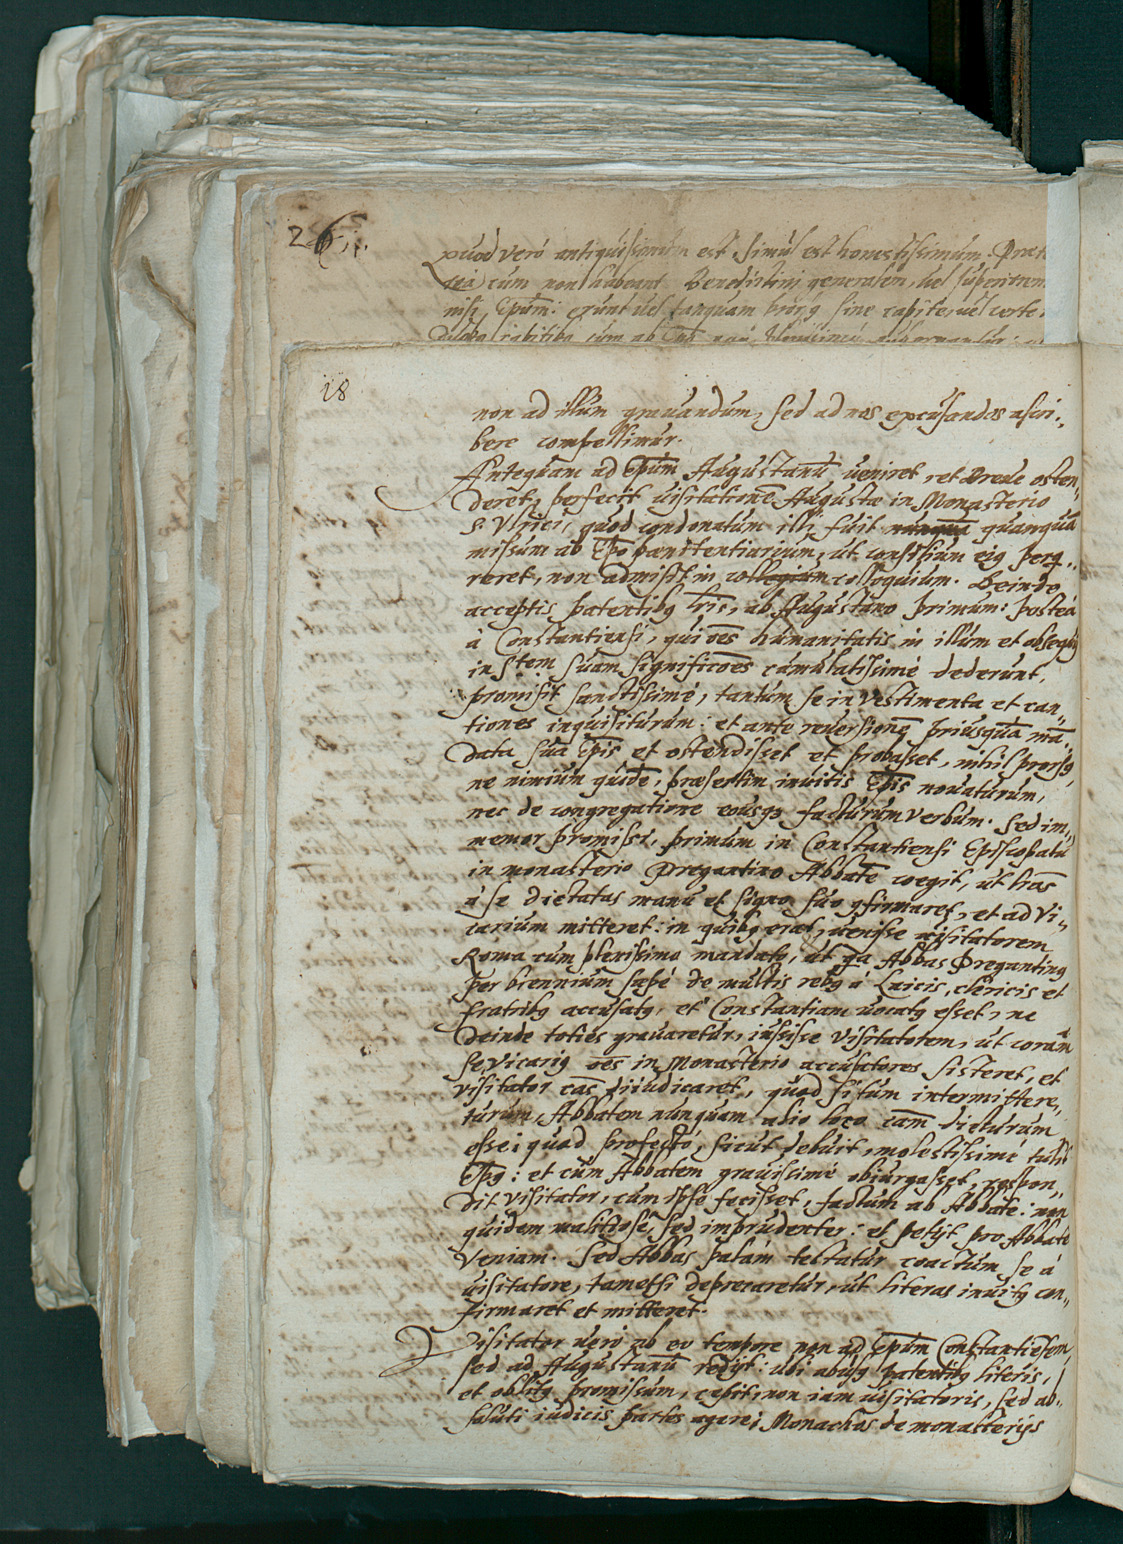 26.
quod verò antiquissimum est simul est honestissimum. Praet
cum non habeant Benedictini generalem, uel superiorem
nisi Epũm: erunt uel tanquam sine capite, uel certe
18
non ad illum grauandum, sed ad nos excusandos ascri-
bere compellimur.
Antequam ad Epũm Augustanũ ueniret et Breue osten-
deret, perfecit uisitationẽ Augustæ in Monasterio
S. Vlrici, quod condonatum illi fuit nunquã quanquã
missum ab Epõ pœnitentiarium, ut consilium eiꝰ perq-
reret, non admisit in collegium colloquium. Deinde
acceptis patentibꝰ lr̃is, ab Augustano primum: postea
à Constantiensi, qui oẽs humanitatis in illum et obsequij
in Stem suam significões cumulatissimè dederunt,
promisit sanctissimè, tantum se in vestimenta et can-
tiones inquisiturum: et ante reuersionẽ priusquã mã-
data sua Epĩs et ostendisset et probasset, nihil prorsꝰ,
ne nimium quidẽ, præsertim inuitis Epĩs nouaturum,
nec de congregatione eousqꝫ facturum verbum. Sed im-
memor promissi, primum in Constantiensi Episcopatu
in monasterio Pregantino Abbatẽ coegit, ut lr̃as
à se dictatas manu et signo suo ꝯfirmaret, et ad Vi-
carium mitteret: in quibꝰ erat, uenisse uisitatorem
Roma cum plenissimo mandato, ut qa Abbas Pregantinꝰ
per biennium sæpè de multis rebꝰ à Laicis, clericis et
fratribꝰ accusatꝰ, et Constantiam uocatꝰ esset, ne
deinde toties grauaretur, iussisse Visitatorem, ut corã
se Vicariꝰ oẽs in Monasterio accusatores sisteret, et
visitator cãs dijudicaret, quod si tum intermittere-
turum, Abbatem nunquam alio loco cãm dicturum
esse; quod profectò, sicut debuit, molestissimè tulit
Epꝰ: et cum Abbatem grauissimè obiurgasset, respon-
dit Visitator, cum ipse fecisset, factum ab Abbate: non
quidem malitiosè, sed imprudenter: et petijt pro Abbate
Veniam. Sed Abbas palàm testatur coactum se à
uisitatore, tametsi deprecaretur, ut literas inuitꝰ con-
firmaret et mitteret.
Visitator uerò ab eo tempore non ad Epũm Constantiẽsem,
sed ad Augustanũ redijt: ubi abusꝰ patentibꝰ literis,
et oblitꝰ promissum, cepit, non iam uisitatoris, sed ab-
soluti iudicis partes agere; Monachos de monasterijs